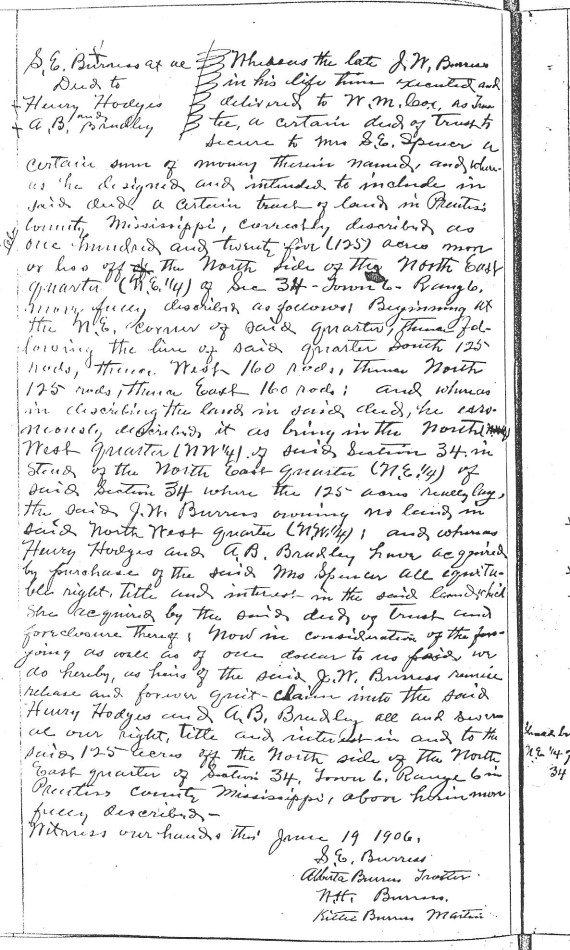 S. E. Burress et al
Deed to
Henry Hodges
and
A. B. Bradley
Whereas the late J. W. Burress
in his life time executed and
delivered to W. M. Cox, as Trus
tee, a certain deed of trust to
secure to Mrs S. E. Spencer a
certain sum of money therein named, and where-
as he designed and intended to include in
said deed a certain tract of land in Prentiss
County, Mississippi, correctly described as
one hundred and twenty five (125) acres more
or less off the North side of the North East
quarter (N.E. 1/4) of Sec 34 - Town 6 - Range 6,
more fully described as follows; Beginning at
the N.E. corner of said quarter, thence fol-
lowing the line of said quarter South 125
rods, thence West 160 rods, thence North
125 rods, thence East 160 rods; and whereas
in describing the land in said deed, he erro-
neously described it as being in the North
West quarter (NW 1/4) of said Section 34 in
stead of the North East quarter (N.E. 1/4) of
said Section 34 where the 125 acres really lay,
the said J. W. Burress owning no land in
said North West quarter (N.W. 1/4); and whereas
Henry Hodges and A. B. Bradley have acquired
by purchase of the said Mrs Spencer all equita-
ble right, title and interest in the said land which
she acquired by the said deed of trust and
foreclosure thereof; Now in consideration of the fore-
going as well as of one dollar to us paid, we
do hereby, as heirs of the said J. W. Burress remise
release and forever quit-claim unto the said
Henry Hodges and A. B. Bradley all and sever
al our right, title and interest in and to the
said 125 acres off the North side of the North
East quarter of Section 34, Town 6, Range 6 in
Prentiss county Mississippi, above herein more
fully described -
Witness our hands this June 19 1906.
S. E. Burress
Alberta Burress Trotter
N. H. Burress.
Kittie Burress Martin
N.E. 1/4 of
34